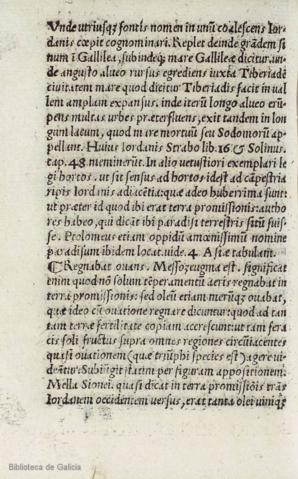 Vnde vtriusqꝫ fontis nomen in unũ coalescens Ior-
danis cœpit cognominari. Replet deinde grãdem si
num ĩ Gallilea, subindeqꝫ mare Gallileæ dicitur. un-
de angusto alueo rursus egrediens iuxta Tiberiadẽ
ciuitatem mare quod dicitur Tiberiadis facit in val
lem amplam expansus. inde iterũ longo alueo erũ-
pens multas vrbes præterfluens, exit tandem in lon
gum lacum, quod mare mortuũ seu Sodomorũ ap-
pellant. Huius Iordanis Strabo lib. 16 & Solinus.
cap. 48 meminerũt. In alio vetustiori exemplari le
gi hortos. ut sit sensus ad hortos. idest ad cãpestria
ripis Iordanis adiacẽtia: quæ adeo huberima sunt:
ut præter id quod ibi erat terra promissionis: autho
res habeo, qui dicãt ibi paradisi terrestris sitũ fuis-
se. Ptolomeus etiam oppidũ amœnissimũ nomine
paradisum ibidem locat. uide. 4. Asiæ tabulam.
¶ Regnabat ouans. Messozeugma est, significat
enim quod nõ solum tẽperamentũ aeris regnabat in
terra promissionis: sed oleũ etiam merũqꝫ ouabat,
quæ ideo cũ ouatione regnare dicuntur: quod ad tan
tam terræ fertilitate copiam accresunt: ut tam fera
cis soli fructus supra omnes regiones circũiacentes
quasi ouationem (quæ triũphi species est) agere vi-
deãtur. Subiũgit statim per figuram appositionem:
Mella Sionei. quasi dicat in terra promissiõis trãs
Iordanem occidentem versus, erat tanta olei viniqꝫ
Biblioteca de Galicia